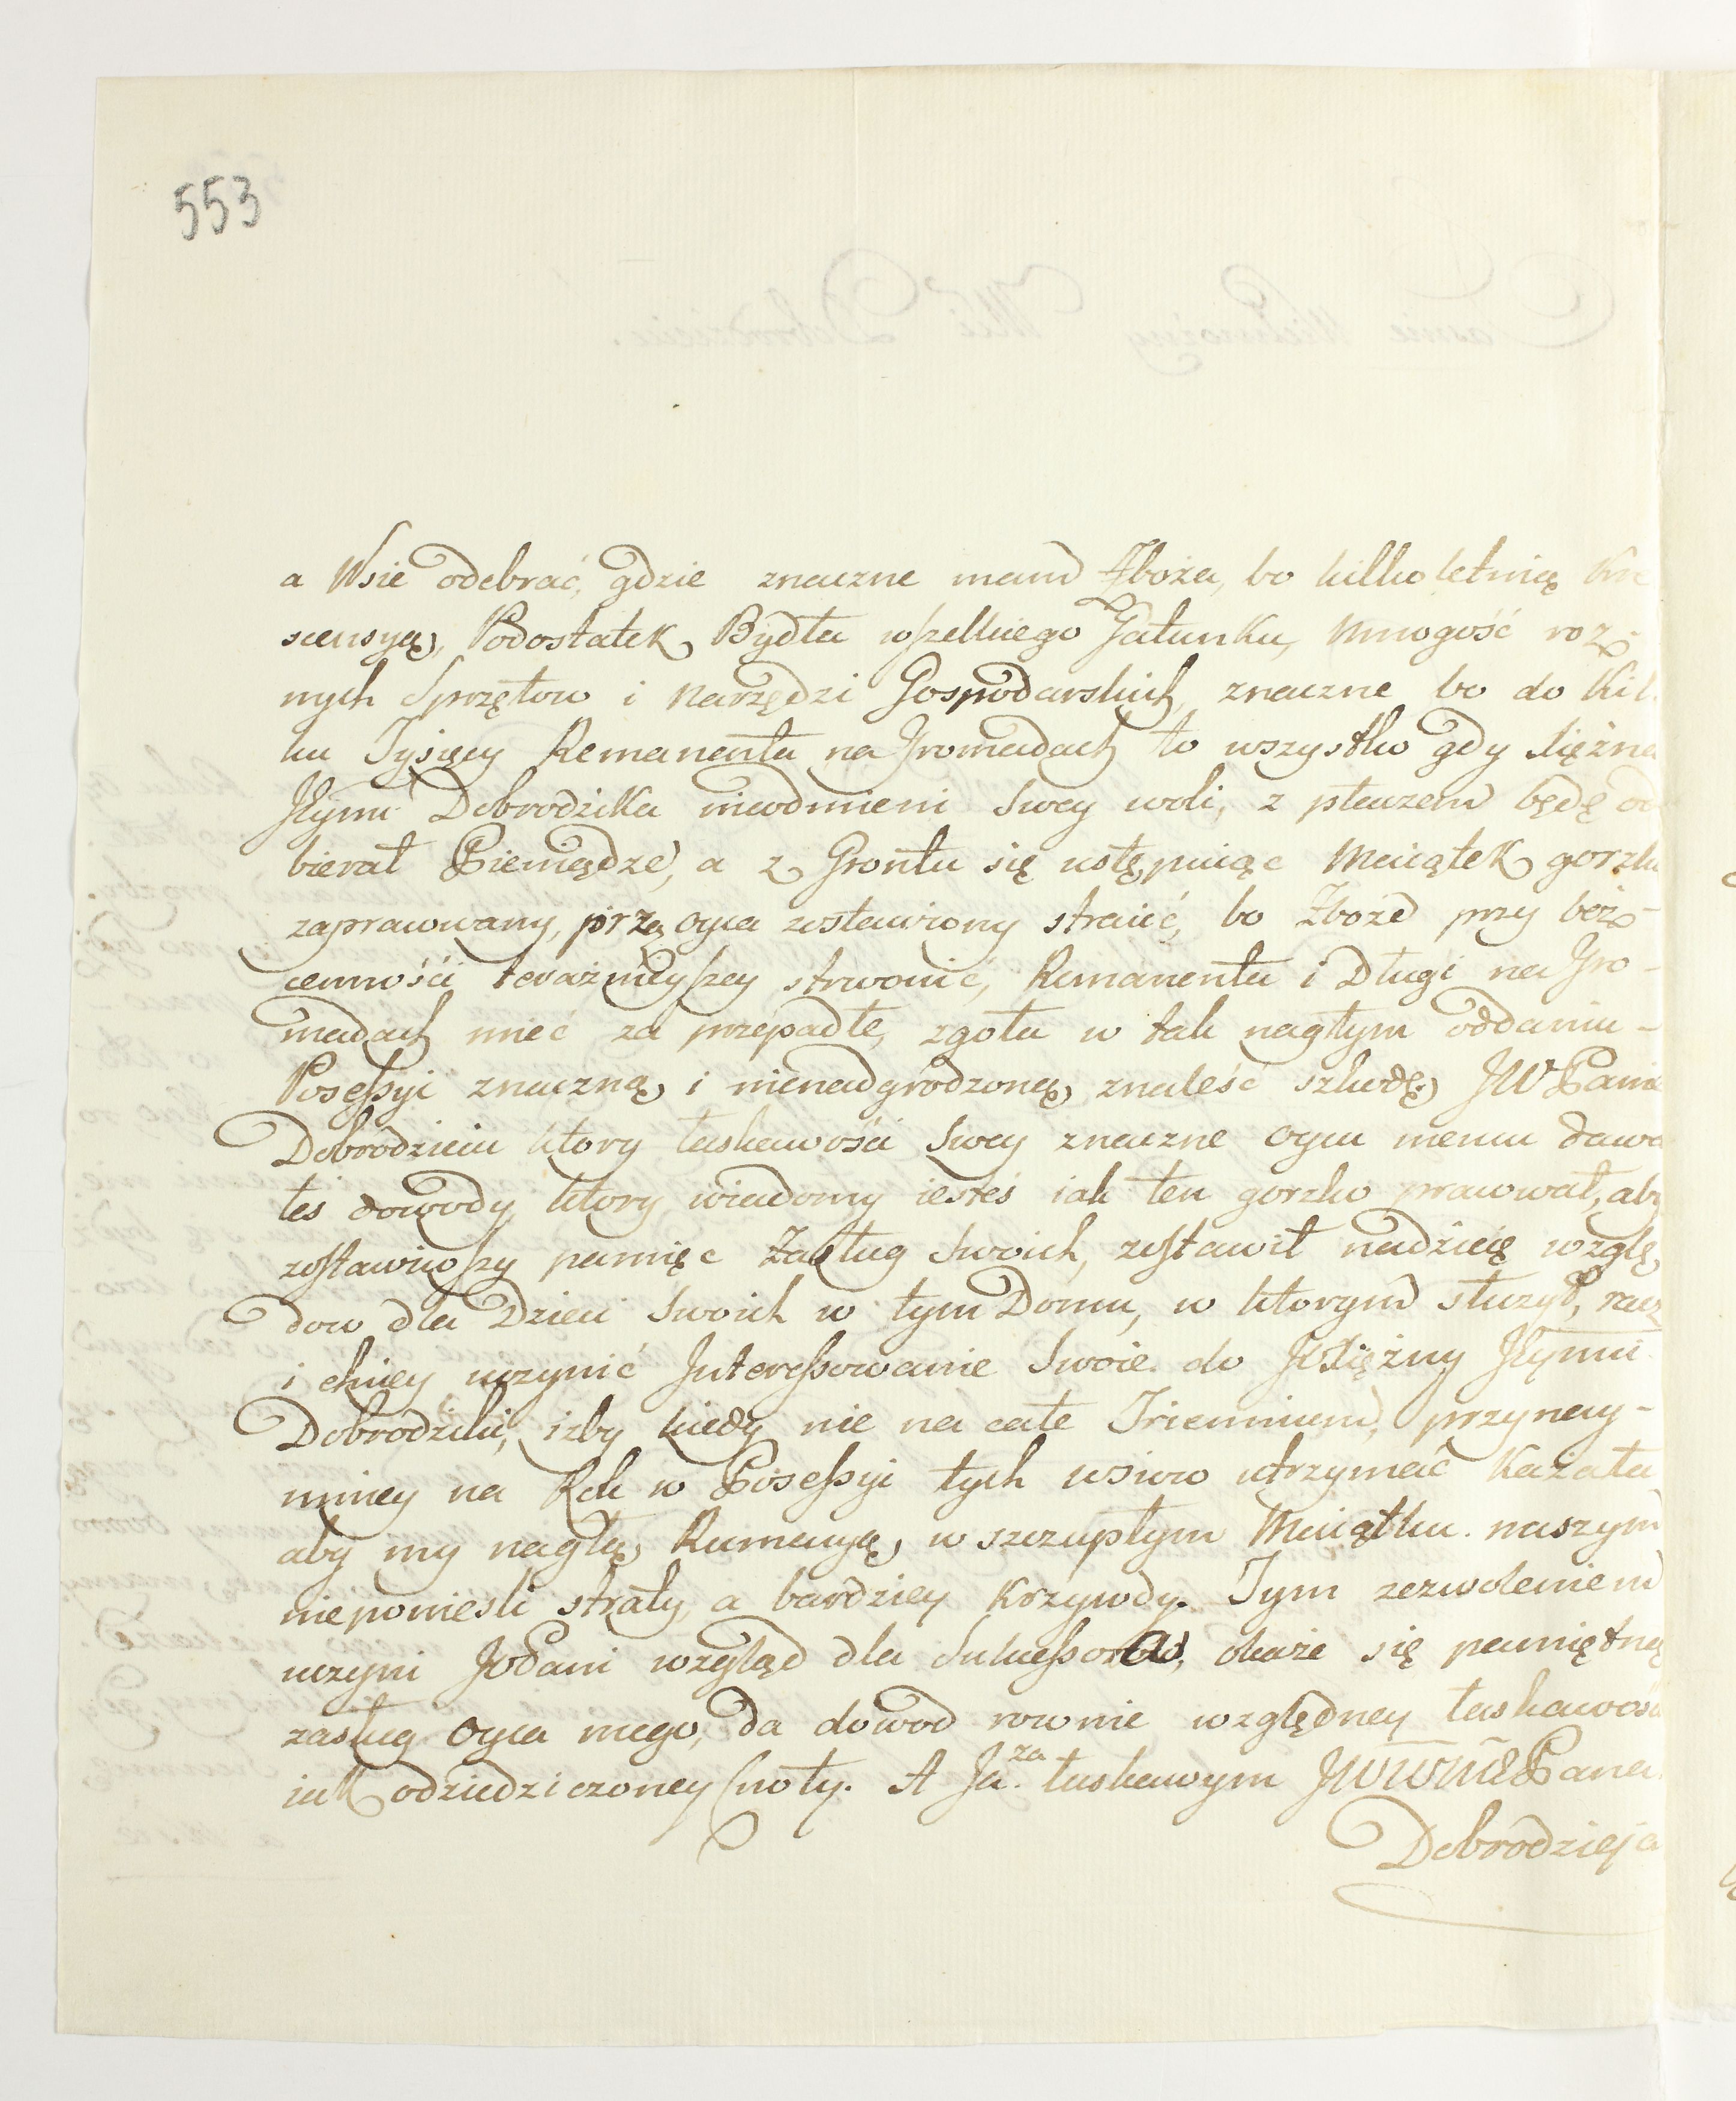 553
a Wsie odebrać, gdzie znaczne mam Zboża, bo kilko letnią Kre
scensyą, Podostatek Bydła wszelkiego Gatunku, Mnogość roz-
nych Sprzętow i Narzędzi Gospodarskich, znaczne bo do Kil
ku Tysięcy Remanenta na Gromadach to wszystko gdy Xiężna
JKymć Dobrodzika nieodmieni Swey woli, z płaczem będę od
bierał Pieniądze, a z Grontu się ustępuiąc Maiątek gorzko
zapracowany, przez oyca zostawiony stracić, bo Zboże przy bez-
cenności teraźnieyszey strwonić, Remanenta i Długi na Gro-
madach mieć za przepadłe, zgoła w tak nagłym oddaniu-
Possessyi znaczną, i nienadgrodzoną, znaleść szkodę, JW Panie
Dobrodzieiu ktory łaskawości Swey znaczne oycu memu dawa
łeś dowody, ktory wiadomy iesteś iak ten gorzko pracował, aby
zostawiwszy pamięć Zasług Swoich, zostawił nadzieię wzglę
dow dla Dzieci Swoich w tym Domu, w ktorym służył, racz
i chciey uczynić Interessowanie Swoie do JXiężny JKymci
Dobrodziki, iżby kiedy nie na całe Triennium, przynay-
mniey na Rok w Possessyi tych wsiow utrzymać Kazała
aby my nagłą, Rumacyą, w szczupłym Maiątku naszym
nieponieśli straty, a bardziey Krzywdy. Tym zezwoleniem
uczyni JOPani wzgląd dla Sukcessorow, okaże się pamiętną
zasług oyca mego, da dowod rownie względney łaskawości
iak odziedziczoney Cnoty. A Ja za łaskawym JWWMć Pana
Dobrodzieja